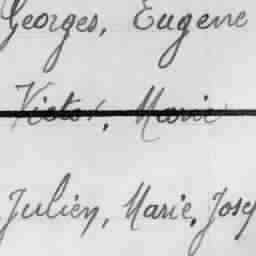 Georges, Eugene
Victor, Marie
Julien, Marie, Josep